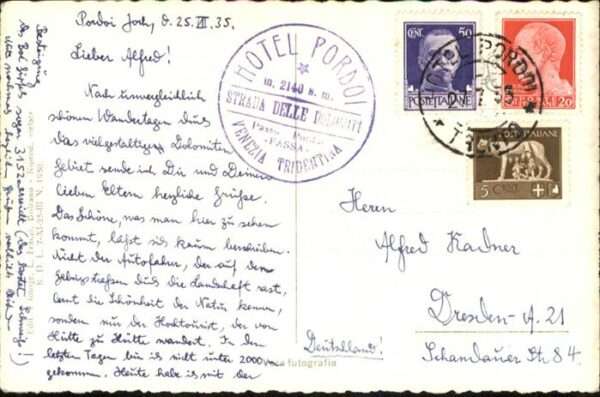 Pordoi Joch, d. 25. VII. 35.
Lieber Alfred!
Nach unvergleichlich
schönen Wandertagen durch
das vielgestaltige Dolomiten
Gebiet sende ich Dir und Deinen
lieben Eltern herzliche Grüße.
Das Schöne, was man hier zu sehen
bekommt, läßt sich kaum beschreiben.
Nicht der Autofahrer, der auf den
Gebirgsstraßen durch die Landschaft rast,
lernt die Schönheit der Natur kennen,
sondern nur der Hochtourist, der von
Hütte zu Hütte wandert. In den
letzten Tagen bin ich nicht unter 2000 m
gekommen. Heute habe ich mit der
Besteigung
der Boé Spitze sogar 3152 m erreicht (das kostet Schweiß!)
Herrn
Alfred Kadner
Dresden-A. 21
Schandauer Str. 84
Deutschland!
HOTEL PORDOI
m. 2140 s. m.
STRADA DELLE DOLOMITI
Passo Pordoi
-FASSA-
VENEZIA TRIDENTINA
CENT. 50
POSTE ITALIANE
20
POSTE ITALIANE
5 CENT.
PORDOI
fotografia